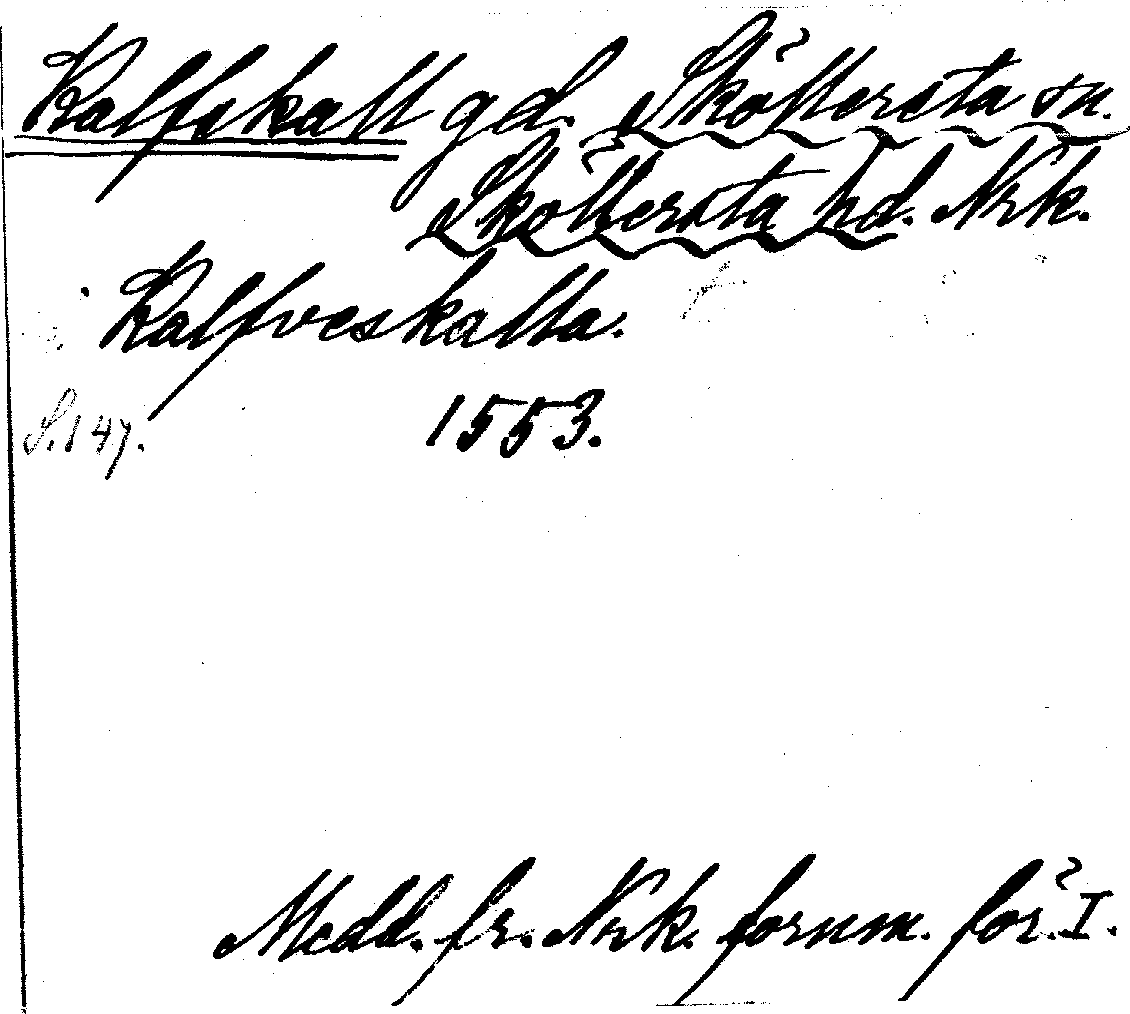 Kalfskall gd. Sköllersta sn.
Sköllersta hd. Nrk.
Kalfveskalla.
S. 147. 1553.
Medd. fr. Nrk. fornm. för. I.